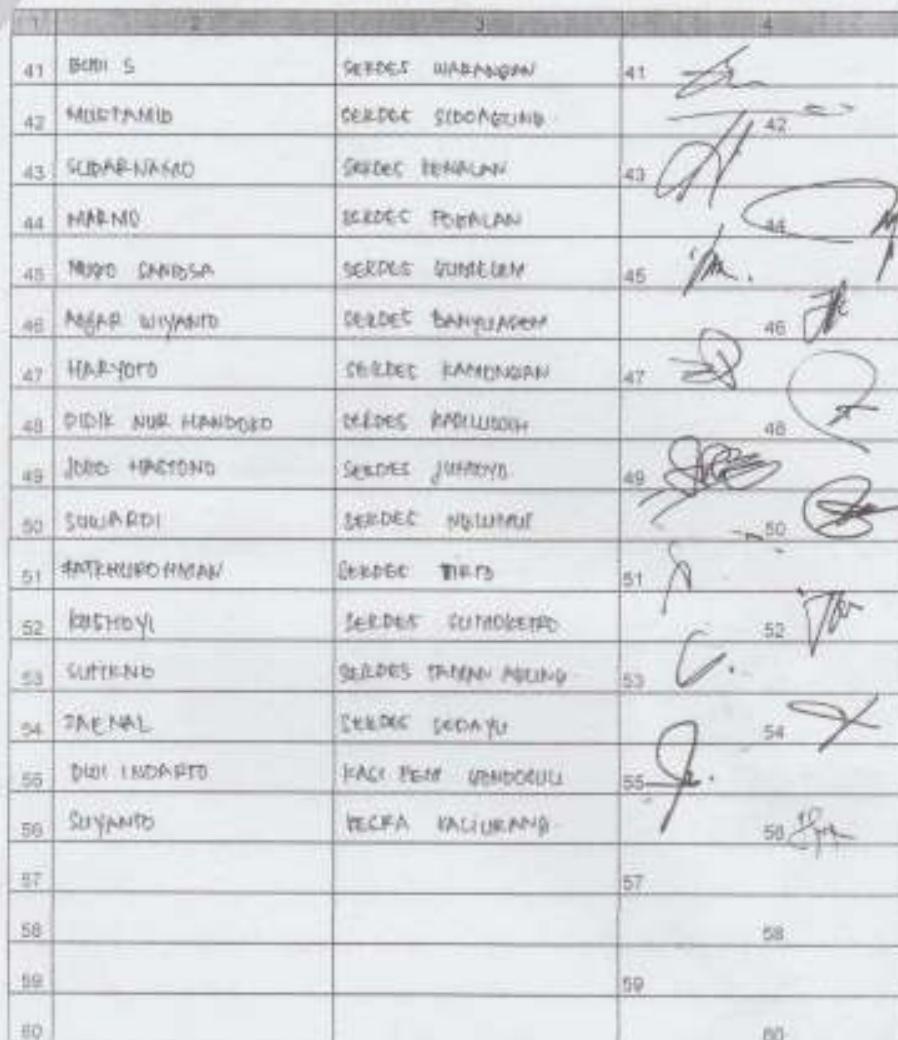 1 2 3 4
41 BUDI S SEKDES WARANGAN 41
42 MUSTAMID SEKDES SIDOAGUNG 42
43 SUDARNASTO SEKDES 43
44 MARMO SEKDES 44
45 SEKDES GUMELEM 45
46 WIYANTO SEKDES BANYUASEM 46
47 HARYOTO SEKDES KAMONGAN 47
48 DIDIK NUR HANDOKO SEKDES 48
49 JODO HASTONO SEKDES JUMOYO 49
50 SUWARDI SEKDES NGLUMUT 50
51 FATKHUROHMAN SEKDES TIRTO 51
52 SEKDES 52
53 SEKDES TAMAN AGUNG 53
54 ZAENAL SEKDES SEDAYU 54
55 DWI INDARTO KASI PEM 55
56 SUYANTO KALIURANG 56
57 57
58 58
59 59
60 60